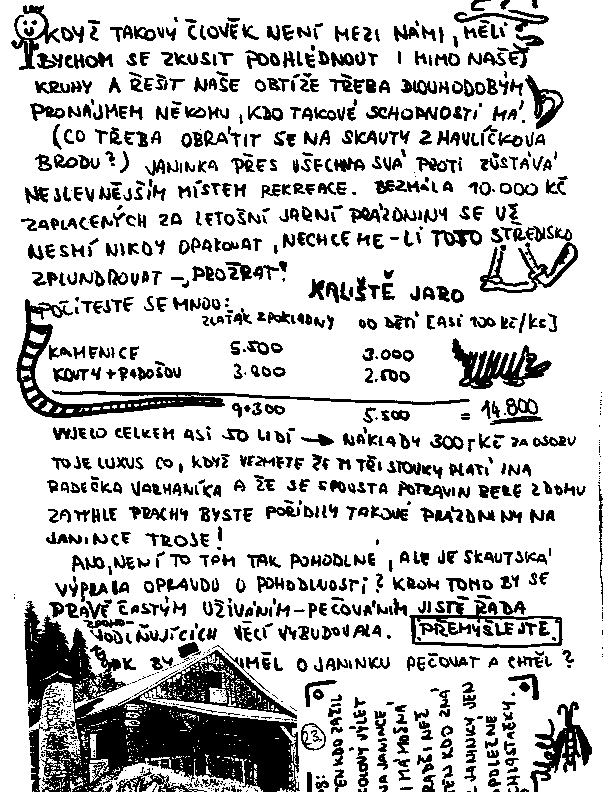 KDYŽ TAKOVÝ ČLOVĚK NENÍ MEZI NÁMI, MĚLI
BYCHOM SE ZKUSIT POOHLÉDNOUT I MIMO NAŠE
KRUHY A ŘEŠIT NAŠE OBTÍŽE TŘEBA DLOUHODOBÝM
PRONÁJMEM NĚKOMU, KDO TAKOVÉ SCHOPNOSTI MÁ.
(CO TŘEBA OBRÁTIT SE NA SKAUTY Z HAVLÍČKOVA
BRODU?) JANINKA PŘES VŠECHNA SVÁ PROTI ZŮSTÁVÁ
NEJLEVNĚJŠÍM MÍSTEM REKREACE. BEZMÁLA 10.000 KČ
ZAPLACENÝCH ZA LETOŠNÍ JARNÍ PRÁZDNINY SE UŽ
NESMÍ NIKDY OPAKOVAT, NECHCEME-LI TOTO STŘEDISKO
ZPLUNDROVAT - „PROŽRAT"!
KALIŠTĚ JARO
POČÍTEJTE SE MNOU:
ZLAŤÁK Z POKLADNY OD DĚTÍ [ASI 100 KČ/KS]
KAMENICE 5.500 3.000
KOUTY + RADOŠOV 3.800 2.500
9.300 5.500 = 14.800
VYJELO CELKEM ASI 50 LIDÍ → NÁKLADY 300,- KČ ZA OSOBU
TO JE LUXUS CO, KDYŽ VEZMETE ŽE TY TŘI STOVKY PLATÍ I
RADEČKA VARHANÍKA A ŽE SE SPOUSTA POTRAVIN BERE Z DOMU
ZA TYHLE PRACHY BYSTE POŘÍDILY TAKOVÉ PRÁZDNINY NA
JANINCE TROJE!
ANO, NENÍ TO TAM TAK POHODLNÉ, ALE JE SKAUTSKÁ
VÝPRAVA OPRAVDU O POHODLNOSTI? KROM TOHO BY SE
PRÁVĚ ČASTÝM UŽÍVÁNÍM-PEČOVÁNÍM JISTĚ ŘADA
ZPOHODLŇUJÍCÍCH VĚCÍ VYBUDOVALA. PŘEMÝŠLEJTE.
KDO BY UMĚL O JANINKU PEČOVAT A CHTĚL?
23
TEN KDO ZAŽIL
VÝLET
NA JANINCE
MÁ MOŽNÁ
RADŠI NEŽ
TEN KDO ZNÁ
Z JANINKY JEN
SPOLEČNÉ
CHLASTAČKY.